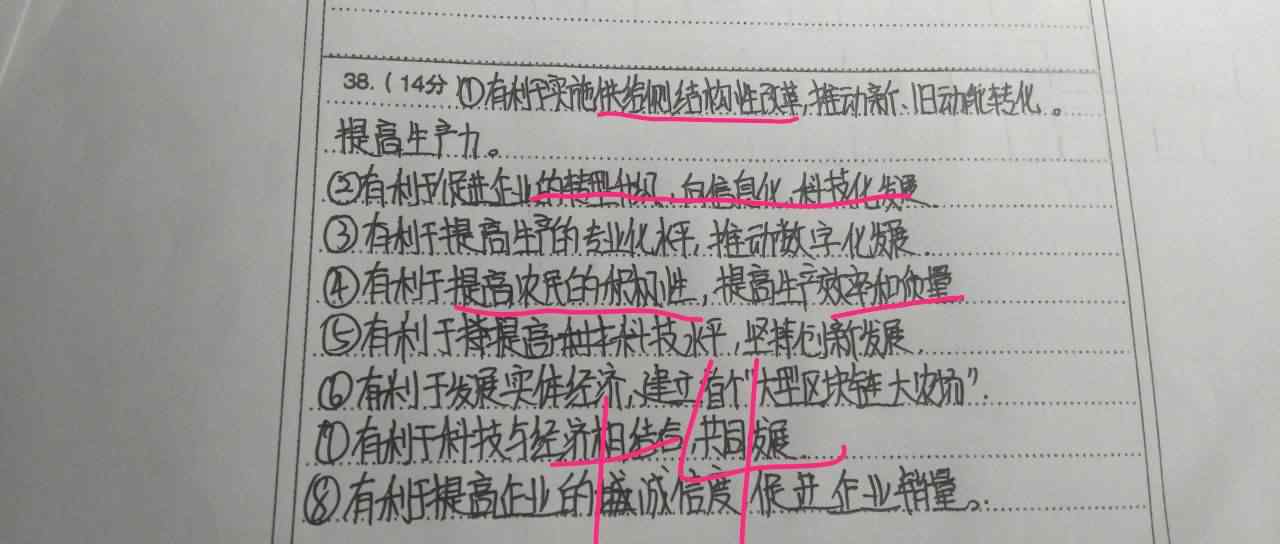 38.(14分)①有利于实施供给侧结构性改革,推动新、旧动能转化。
提高生产力。
②有利于促进企业的转型升级,向信息化,科技化发展.
③有利于提高生产的专业化水平,推动数字化发展.
④有利于提高农民的积极性,提高生产效率和质量
⑤有利于提高科技水平,坚持创新发展.
⑥有利于发展实体经济,建立首个“大型区块链大农场”.
⑦有利于科技与经济相结合,共同发展.
⑧有利于提高企业的诚信度,促进企业销量。
14